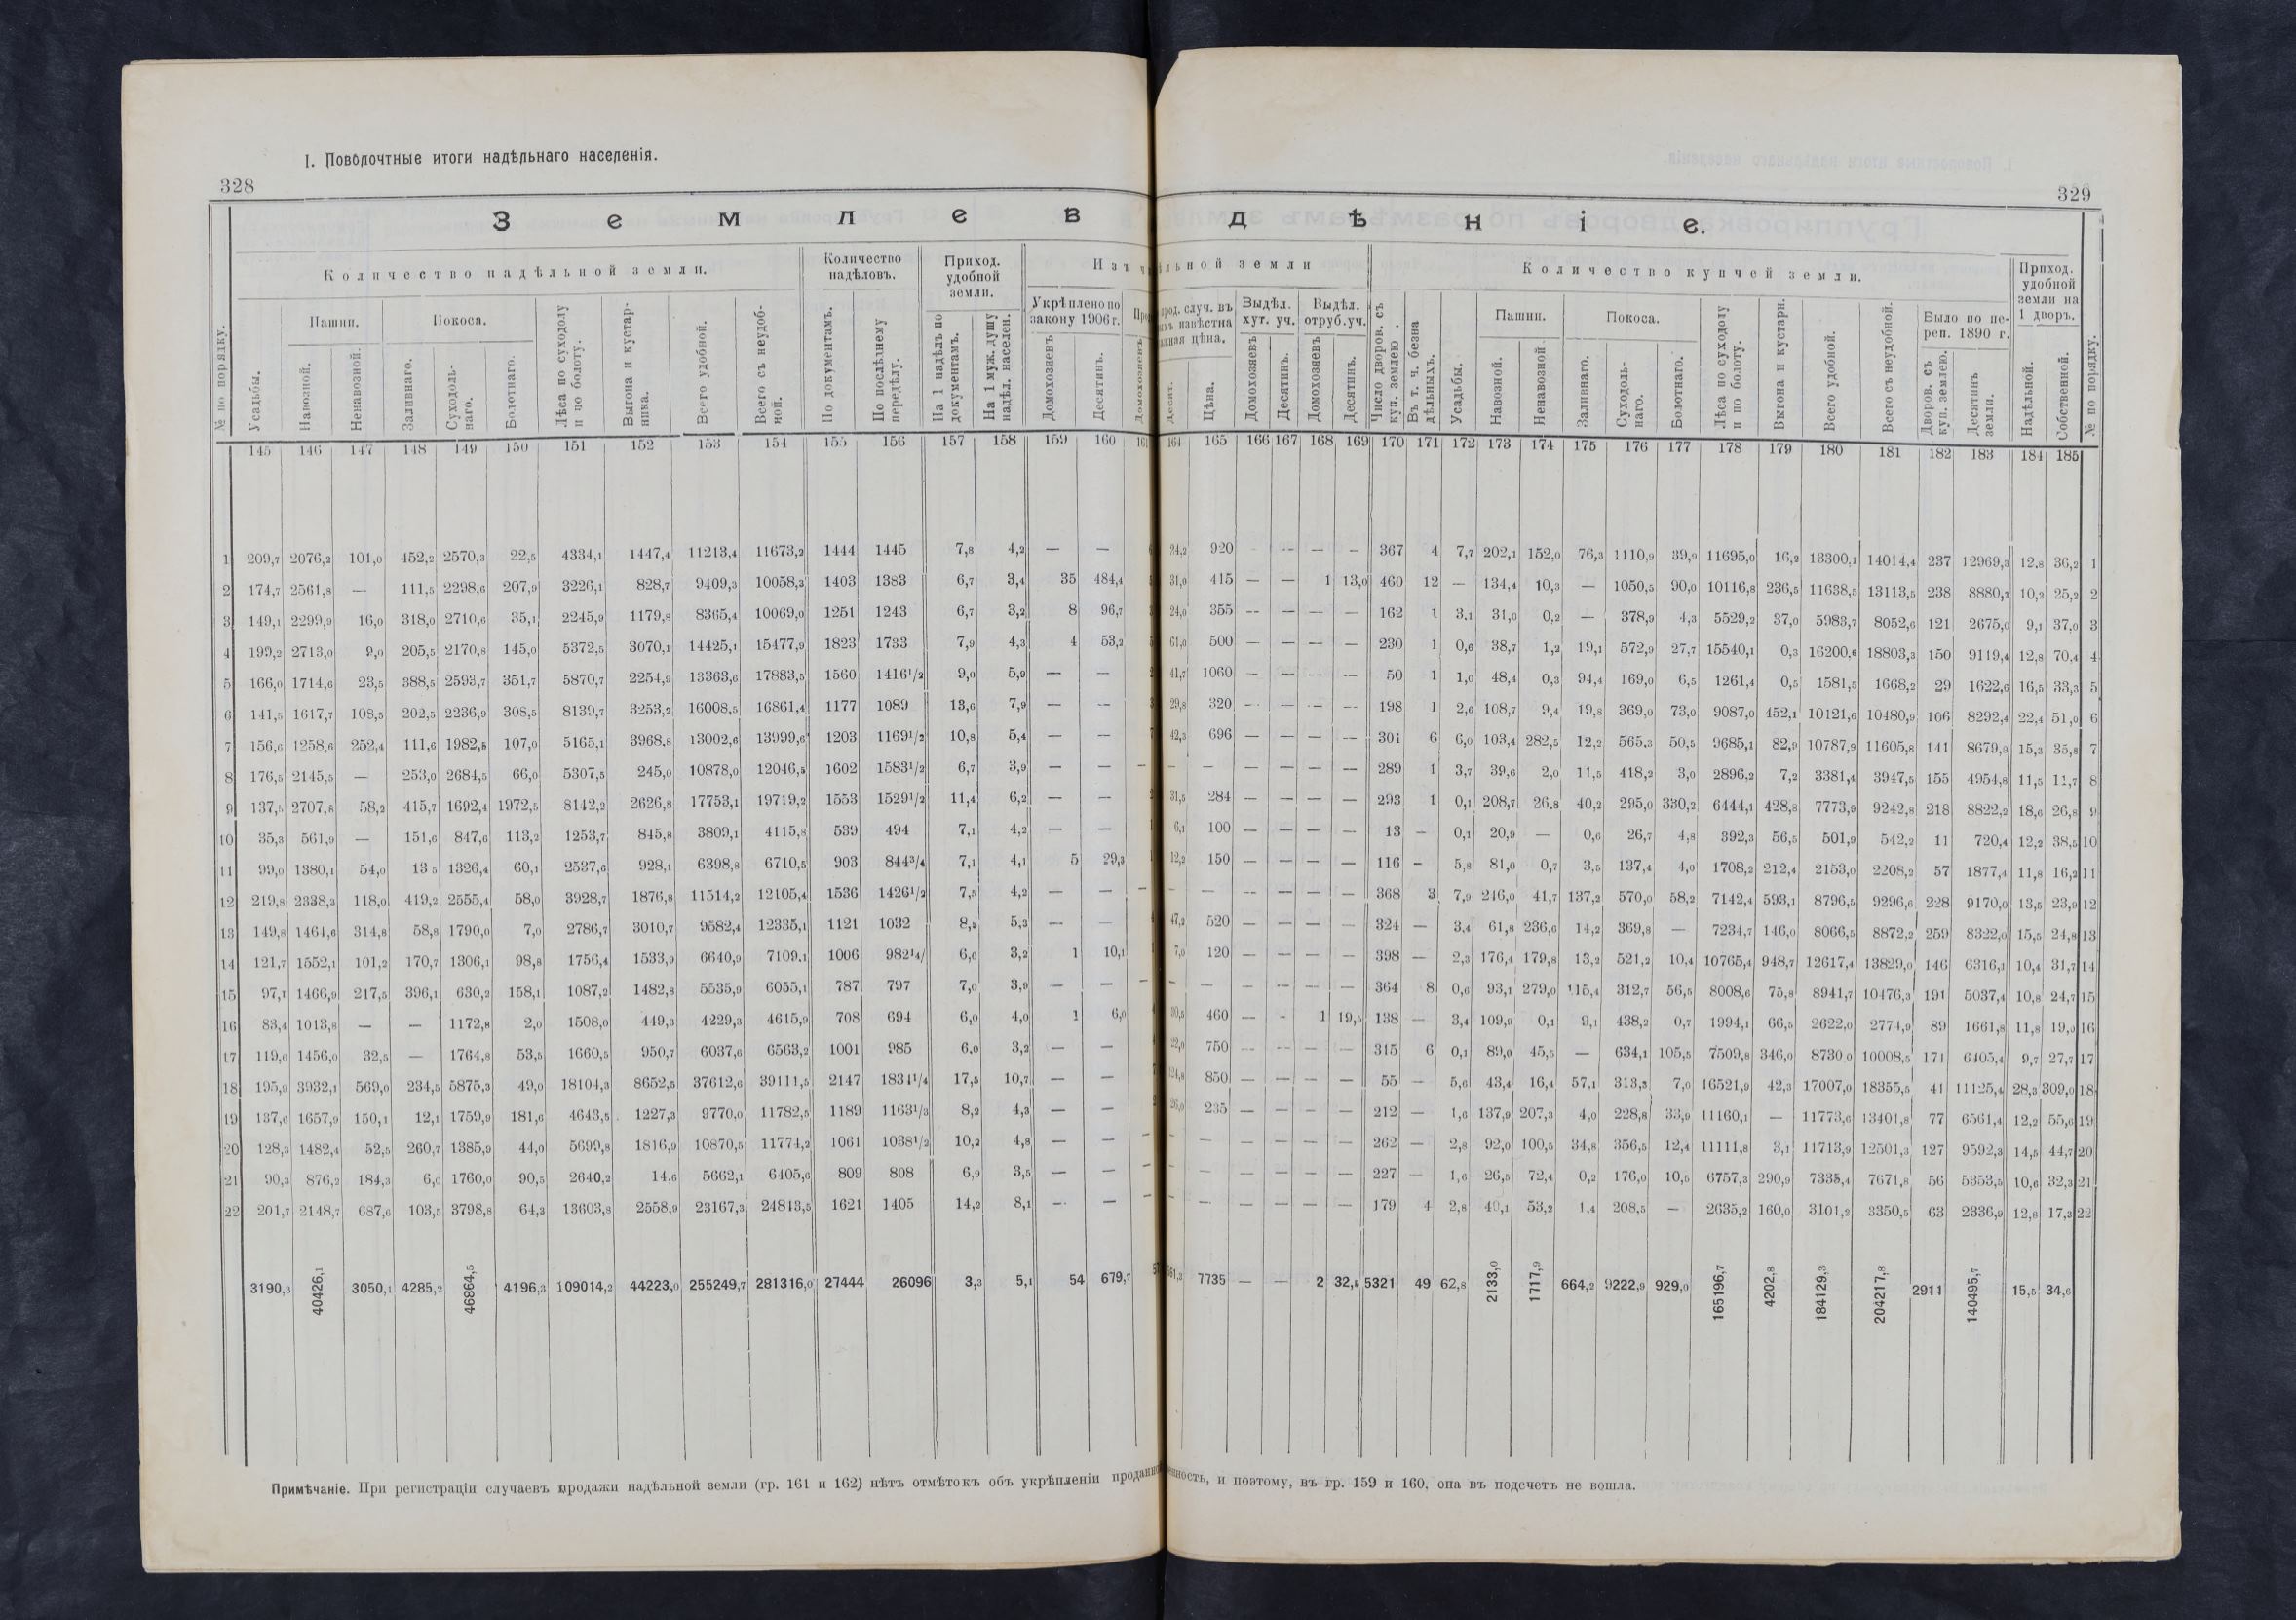 I. Поволочтные итоги надѣльнаго населенія.
328
329
З е м л е в д ѣ н і е.
№ по порядку.
Количество надѣльной земли.
Количество надѣловъ.
Приход. удобной земли.
Изъ ч льной земли
Количество купчей земли.
Приход. удобной земли на 1 дворъ.
№ по порядку.
Пашни.
Покоса.
Укрѣплено по закону 1906 г.
Выдѣл. хут. уч.
Выдѣл. отруб. уч.
Пашни.
Покоса.
Было по пе-реп. 1890 г.
Усадьбы. Навозной. Ненавозной. Заливнаго. Суходоль-наго. Болотнаго. Лѣса по суходолу и по болоту. Выгона и кустар-ника. Всего удобной. Всего съ неудоб-ной. По документамъ. По послѣднему передѣлу. На 1 надѣлъ по документамъ. На 1 муж. душу надѣл. населен. Домохозяевъ Десятинъ.
Десят. Цѣна. Домохозяевъ Десятинъ. Домохозяевъ Десятинъ. Число дворов. съ куп. землею. Въ т. ч. безна дѣльныхъ. Усадьбы. Навозной. Ненавозной. Заливнаго. Суходоль-наго. Болотнаго. Лѣса по суходолу и по болоту. Выгона и кустарн. Всего удобной. Всего съ неудобной. Дворов. съ куп. землею. Десятинъ земли. Надѣльной. Собственной.
145 146 147 148 149 150 151 152 153 154 155 156 157 158 159 160 164 165 166 167 168 169 170 171 172 173 174 175 176 177 178 179 180 181 182 183 184 185
1 209,7 2076,2 101,0 452,2 2570,3 22,5 4334,1 1447,4 11213,4 11673,2 1444 1445 7,8 4,2 — — 24,2 920 — — — — 367 4 7,7 202,1 152,0 76,3 1110,9 39,9 11695,0 16,2 13300,1 14014,4 237 12969,3 12,8 36,2 1
2 174,7 2561,8 — 111,5 2298,6 207,9 3226,1 828,7 9409,3 10058,3 1403 1383 6,7 3,4 35 484,4 31,0 415 — — 1 13,0 460 12 — 134,4 10,3 — 1050,5 90,0 10116,8 236,5 11638,5 13113,5 238 8880,3 10,2 25,2 2
3 149,1 2299,9 16,0 318,0 2710,6 35,1 2245,9 1179,8 8365,4 10069,0 1251 1243 6,7 3,2 8 96,7 24,0 355 — — — — 162 1 3,1 31,0 0,2 — 378,9 4,3 5529,2 37,0 5983,7 8052,6 121 2675,0 9,1 37,0 3
4 199,2 2713,0 9,0 205,5 2170,8 145,0 5372,5 3070,1 14425,1 15477,9 1823 1733 7,9 4,3 4 53,2 61,0 500 — — — — 230 1 0,6 38,7 1,2 19,1 572,9 27,7 15540,1 0,3 16200,6 18803,3 150 9119,4 12,8 70,4 4
5 166,0 1714,6 23,5 388,5 2593,7 351,7 5870,7 2254,9 13363,6 17883,5 1560 1416½ 9,0 5,9 — — 41,7 1060 — — — — 50 1 1,0 48,4 0,3 94,4 169,0 6,5 1261,4 0,5 1581,5 1668,2 29 1622,6 16,5 33,3 5
6 141,5 1617,7 108,5 202,5 2236,9 308,5 8139,7 3253,2 16008,5 16861,4 1177 1089 13,6 7,9 — — 29,8 320 — — — — 198 1 2,6 108,7 9,4 19,8 369,0 73,0 9087,0 452,1 10121,6 10480,9 166 8292,4 22,4 51,0 6
7 156,6 1258,6 252,4 111,6 1982,5 107,0 5165,1 3968,8 13002,6 13999,6 1203 1169½ 10,8 5,4 — — 42,3 696 — — — — 301 6 6,0 103,4 282,5 12,2 565,3 50,5 9685,1 82,9 10787,9 11605,8 141 8679,0 15,3 35,8 7
8 176,5 2145,5 — 253,0 2684,5 66,0 5307,5 245,0 10878,0 12046,5 1602 1583½ 6,7 3,9 — — — — — — — — — 289 1 3,7 39,6 2,0 11,5 418,2 3,0 2896,2 7,2 3381,4 3947,5 155 4954,8 11,5 11,7 8
9 137,5 2707,8 58,2 415,7 1692,4 1972,5 8142,2 2626,8 17753,1 19719,2 1553 1529½ 11,4 6,2 — — 31,5 284 — — — — 293 1 0,1 208,7 26,8 40,2 295,0 330,2 6444,1 428,8 7773,9 9242,8 218 8822,2 18,6 26,8 9
10 35,3 561,9 — 151,6 847,6 113,2 1253,7 845,8 3809,1 4115,8 539 494 7,1 4,2 — — 6,1 100 — — — — 13 — 0,1 20,9 — 0,6 26,7 4,8 392,3 56,5 501,9 542,2 11 720,4 12,2 38,5 10
11 99,0 1380,1 54,0 13,5 1326,4 60,1 2537,6 928,1 6398,8 6710,5 903 844¾ 7,1 4,1 5 29,3 12,2 150 — — — — 116 — 5,8 81,0 0,7 3,5 137,4 4,0 1708,2 212,4 2153,0 2208,2 57 1877,4 11,8 16,2 11
12 219,8 2338,3 118,0 419,2 2555,4 58,0 3928,7 1876,8 11514,2 12105,4 1536 1426½ 7,5 4,2 — — — — — — — — — 368 3 7,9 246,0 41,7 137,2 570,0 58,2 7142,4 593,1 8796,5 9296,6 228 9170,0 13,5 23,9 12
13 149,8 1464,6 314,8 58,8 1790,0 7,0 2786,7 3010,7 9582,4 12335,1 1121 1032 8,5 5,3 — — 47,2 520 — — — — 324 — 3,4 61,8 236,6 14,2 369,8 — 7234,7 146,0 8066,5 8872,2 259 8322,0 15,5 24,8 13
14 121,7 1552,1 101,2 170,7 1306,1 98,8 1756,4 1533,9 6640,9 7109,1 1006 982¼ 6,6 3,2 1 10,1 7,0 120 — — — — 398 — 2,3 176,4 179,8 13,2 521,2 10,4 10765,4 948,7 12617,4 13829,0 146 6316,1 10,4 31,7 14
15 97,1 1466,9 217,5 396,1 630,2 158,1 1087,2 1482,8 5535,9 6055,1 787 797 7,0 3,9 — — — — — — — — — 364 8 0,6 93,1 279,0 115,4 312,7 56,5 8008,6 75,8 8941,7 10476,3 191 5037,4 10,8 24,7 15
16 83,4 1013,8 — — 1172,8 2,0 1508,0 449,3 4229,3 4615,9 708 694 6,0 4,0 1 6,0 30,5 460 — - 1 19,5 138 — 3,4 109,9 0,1 9,1 438,2 0,7 1994,1 66,5 2622,0 2774,9 89 1661,8 11,8 19,0 16
17 119,6 1456,0 32,5 — 1764,8 53,5 1660,5 950,7 6037,6 6563,2 1001 985 6,0 3,2 — — 22,0 750 — — — — 315 6 0,1 89,0 45,5 — 634,1 105,5 7509,8 346,0 8730,0 10008,5 171 6405,4 9,7 27,7 17
18 195,9 3932,1 569,0 234,5 5875,3 49,0 18104,3 8652,5 37612,6 39111,5 2147 1834¼ 17,5 10,7 — — 124,8 850 — — — — 55 — 5,6 43,4 16,4 57,1 313,3 7,0 16521,9 42,3 17007,0 18355,5 41 11125,4 28,3 309,0 18
19 137,6 1657,9 150,1 12,1 1759,9 181,6 4643,5 1227,3 9770,0 11782,5 1189 1163⅓ 8,2 4,3 — — 26,0 235 — — — — 212 — 1,6 137,9 207,3 4,0 228,8 33,9 11160,1 — 11773,6 13401,8 77 6561,4 12,2 55,6 19
20 128,3 1482,4 52,5 260,7 1385,9 44,0 5699,8 1816,9 10870,5 11774,2 1061 1038½ 10,2 4,8 — — — — — — — — — 262 — 2,8 92,0 100,5 34,8 356,5 12,4 11111,8 3,1 11713,9 12501,3 127 9592,3 14,5 44,7 20
21 90,3 876,2 184,3 6,0 1760,0 90,5 2640,2 14,6 5662,1 6405,6 809 808 6,9 3,5 — — — — — — — — — 227 — 1,6 26,5 72,4 0,2 176,0 10,5 6757,3 290,9 7335,4 7671,8 56 5353,5 10,6 32,3 21
22 201,7 2148,7 687,6 103,5 3798,8 64,3 13603,8 2558,9 23167,3 24813,5 1621 1405 14,2 8,1 — — — — — — — — — 179 4 2,8 40,1 53,2 1,4 208,5 — 2635,2 160,0 3101,2 3350,5 63 2336,9 12,8 17,3 22
3190,3 40426,1 3050,1 4285,2 46864,5 4196,3 109014,2 44223,0 255249,7 281316,0 27444 26096 3,3 5,1 54 679,7 561,3 7735 — — 2 32,5 5321 49 62,8 2133,0 1717,9 664,2 9222,9 929,0 165196,7 4202,8 184129,3 204217,8 2911 140495,7 15,5 34,6
Примѣчаніе. При регистраціи случаевъ продажи надѣльной земли (гр. 161 и 162) нѣтъ отмѣтокъ объ укрѣпленіи проданно нность, и поэтому, въ гр. 159 и 160, она въ подсчетъ не вошла.